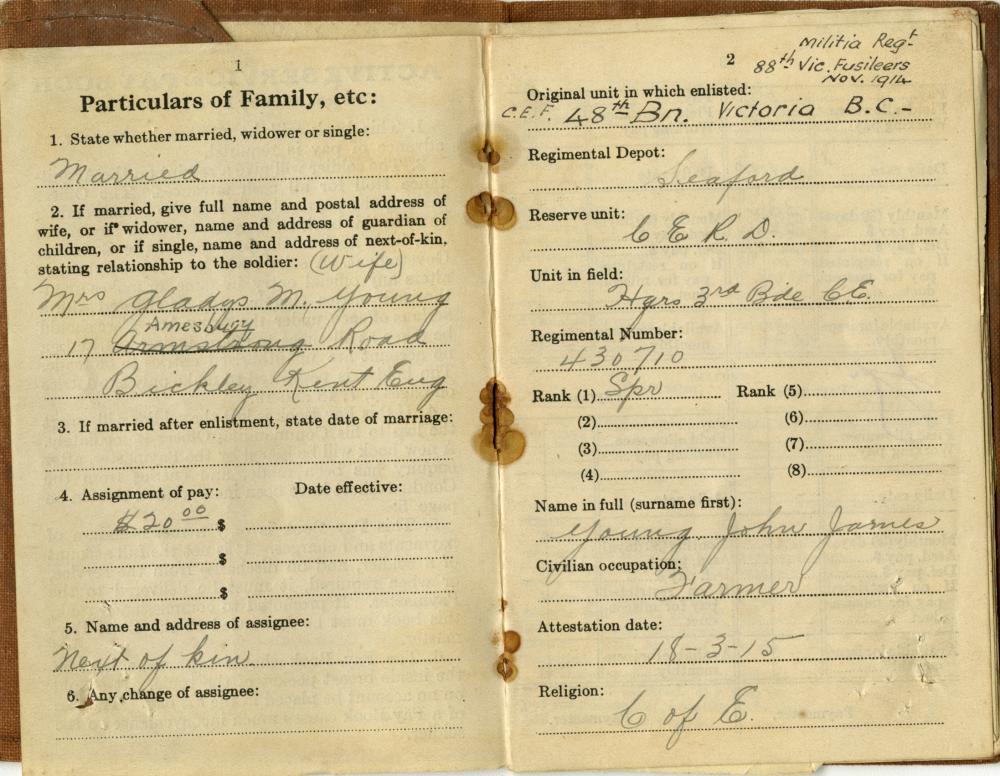 1
Particulars of Family, etc:
1. State whether married, widower or single:
Married
2. If married, give full name and postal address of
wife, or if widower, name and address of guardian of
children, or if single, name and address of next-of-kin,
stating relationship to the soldier: (Wife)
Mrs Gladys M. Young
Amesbury
17 Armstrong Road
Bickley Kent Eng
3. If married after enlistment, state date of marriage:
4. Assignment of pay: Date effective:
$20 00 $
$
$
5. Name and address of assignee:
Next of kin
6. Any change of assignee:
2
Militia Regt
88th Vic. Fusileers
Nov. 1914
Original unit in which enlisted:
C.E.F. 48th Bn. Victoria B.C.-
Regimental Depot:
Seaford
Reserve unit:
C E R D.
Unit in field:
Hqrs 3rd Bde CE.
Regimental Number:
430710
Rank (1) Spr Rank (5)
(2) (6)
(3) (7)
(4) (8)
Name in full (surname first):
Young John James
Civilian occupation:
Farmer
Attestation date:
18-3-15
Religion:
C of E.